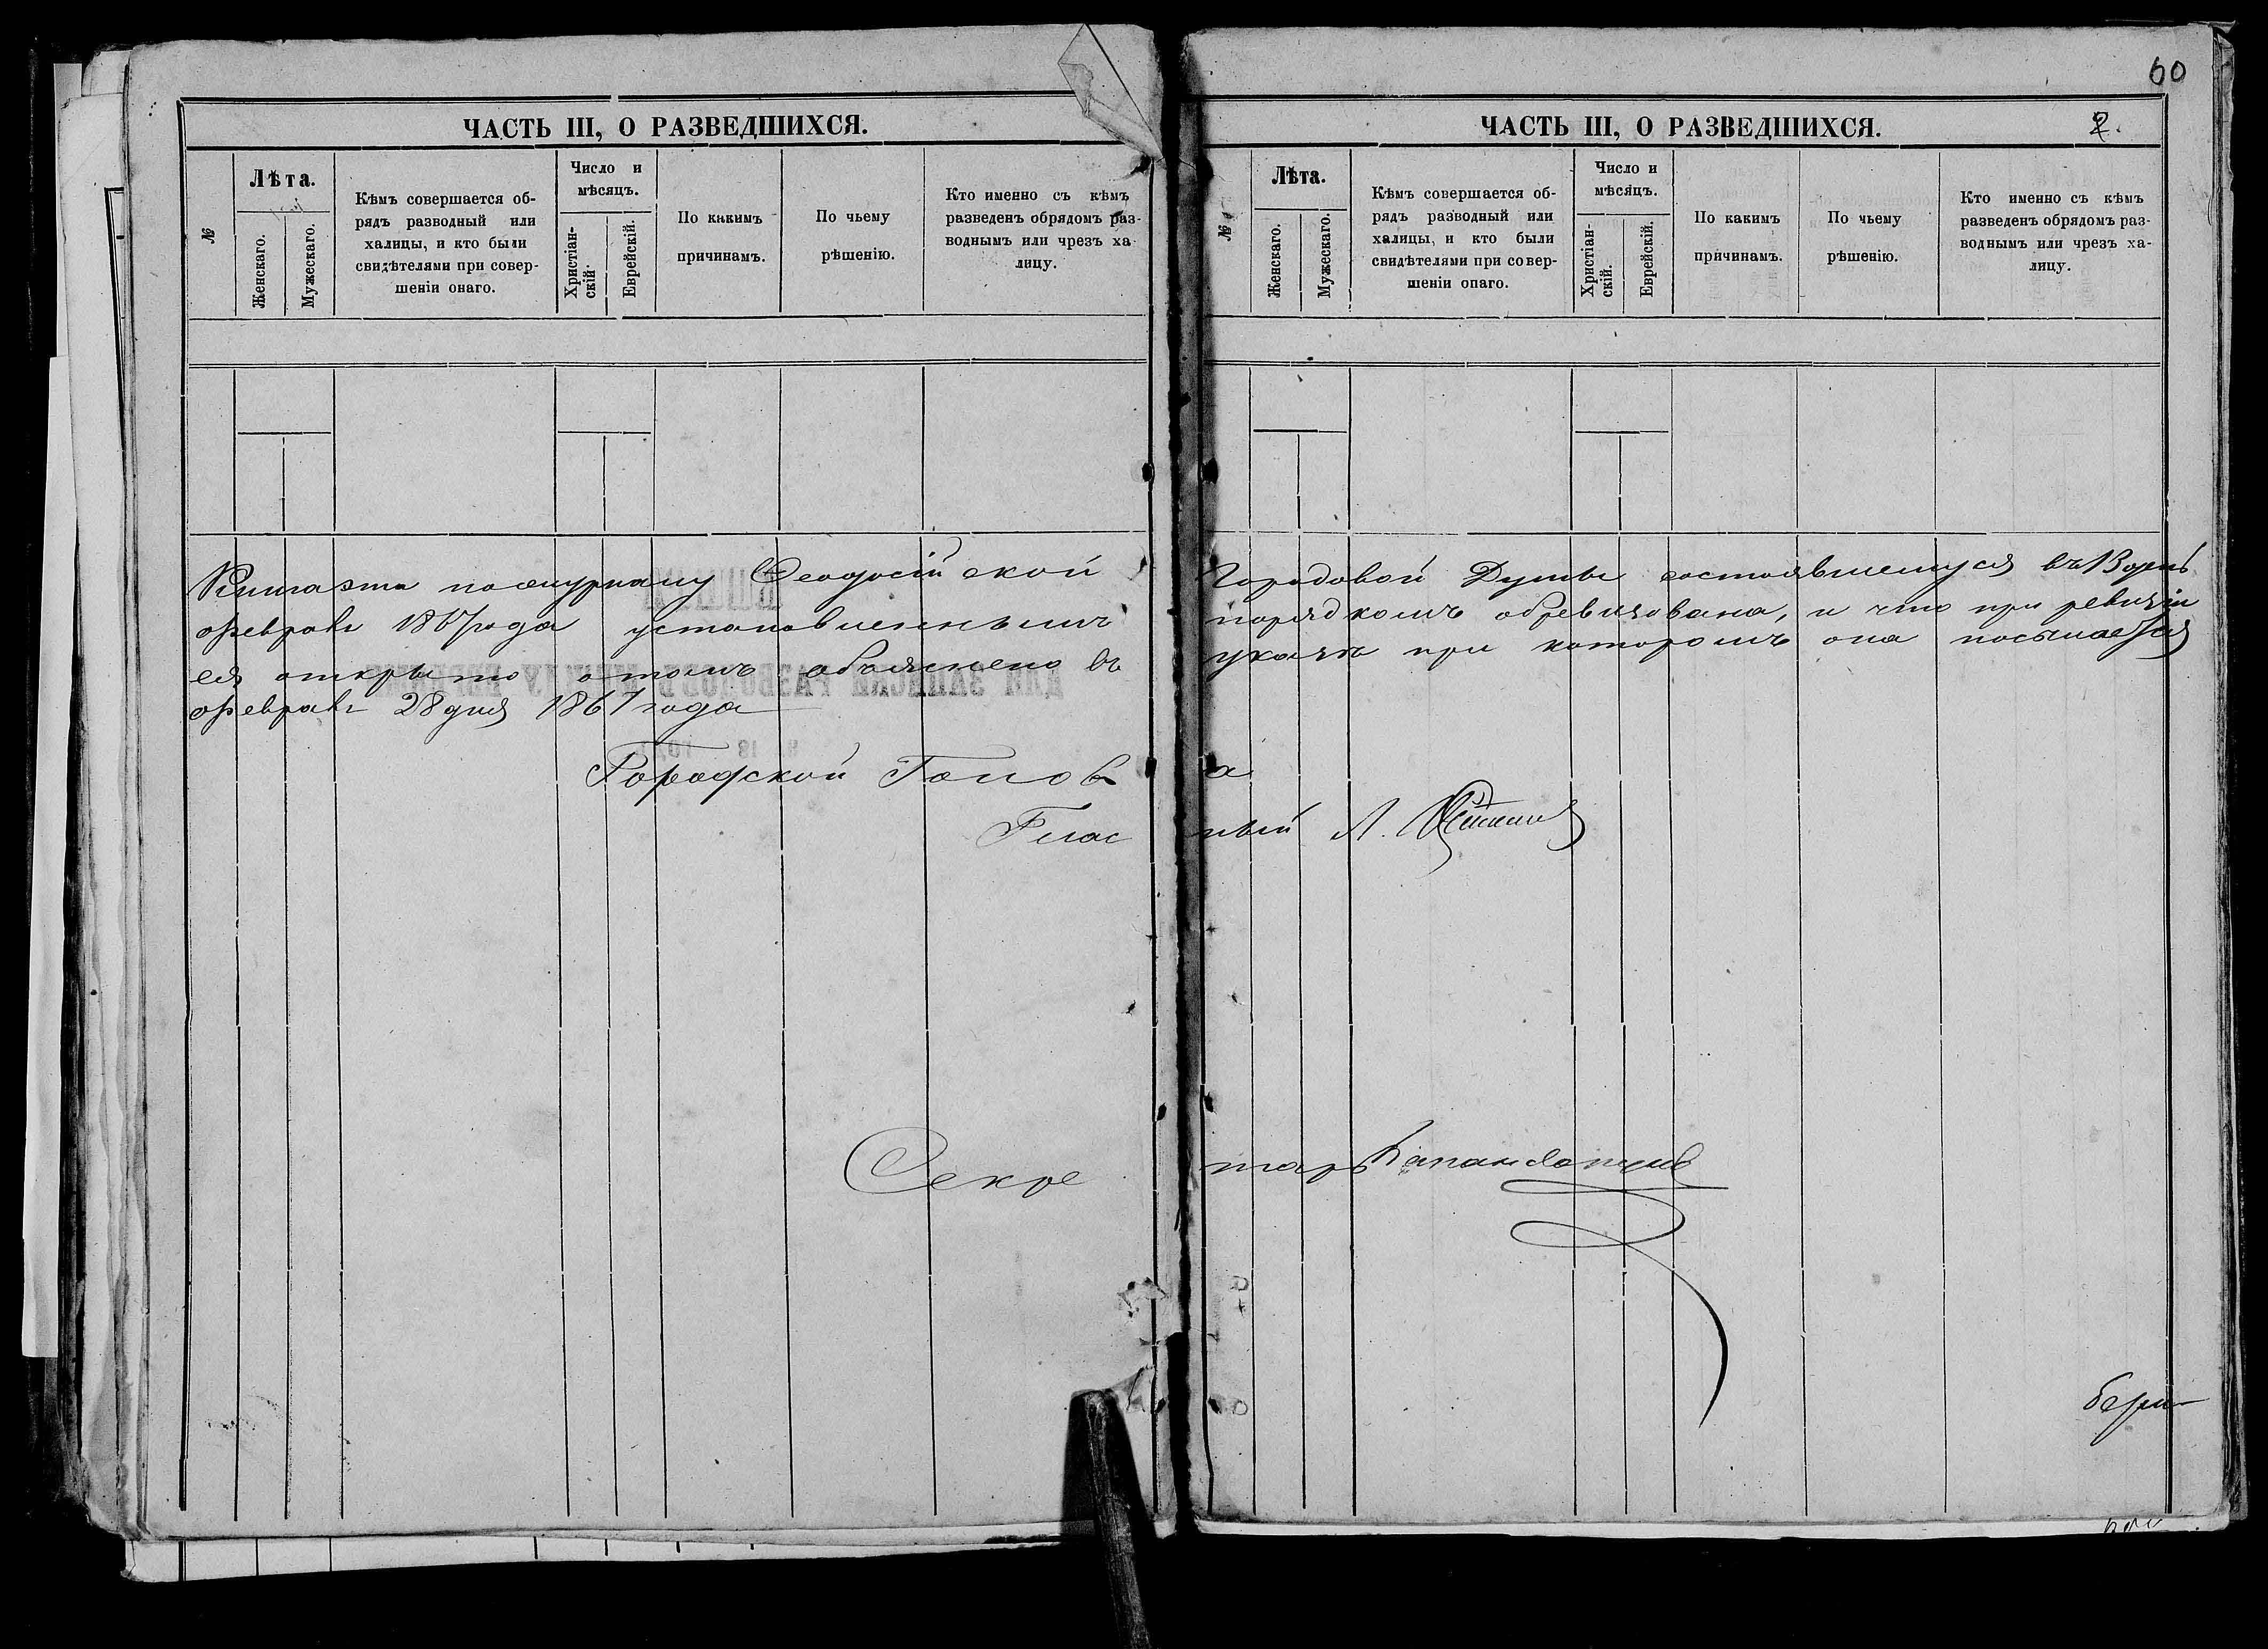 60
ЧАСТЬ III, О РАЗВЕДШИХСЯ.
№
Лѣта.
Женскаго.
Мужескаго.
Кѣмъ совершается об-
рядъ разводный или
халицы, и кто были
свидѣтелями при совер-
шеніи онаго.
Число и
мѣсяцъ.
Христіан-
скій.
Еврейскій.
По какимъ
причинамъ.
По чьему
рѣшенію.
Кто именно съ кѣмъ
разведенъ обрядомъ раз-
воднымъ или чрезъ ха
лицу.
ЧАСТЬ III, О РАЗВЕДШИХСЯ.
2.
№
Лѣта.
Женскаго.
Мужескаго.
Кѣмъ совершается об-
рядъ разводный или
халицы, и кто были
свидѣтелями при совер-
шеніи онаго.
Число и
мѣсяцъ.
Христіан-
скій.
Еврейскій.
По какимъ
причинамъ.
По чьему
рѣшенію.
Кто именно съ кѣмъ
разведенъ обрядомъ раз-
воднымъ или чрезъ ха-
лицу.
Книга эта по журналу Феодосійской Городовой Думы состоявшемуся въ
февраля 1867 года установленнымъ порядкомъ обревизована, и что при ревизіи
ея открыто отомъ объяснено въ указѣ при которомъ она посылается
февраля 28 дня 1867 года
Городской Голова
Гласный Л.
Секретарь